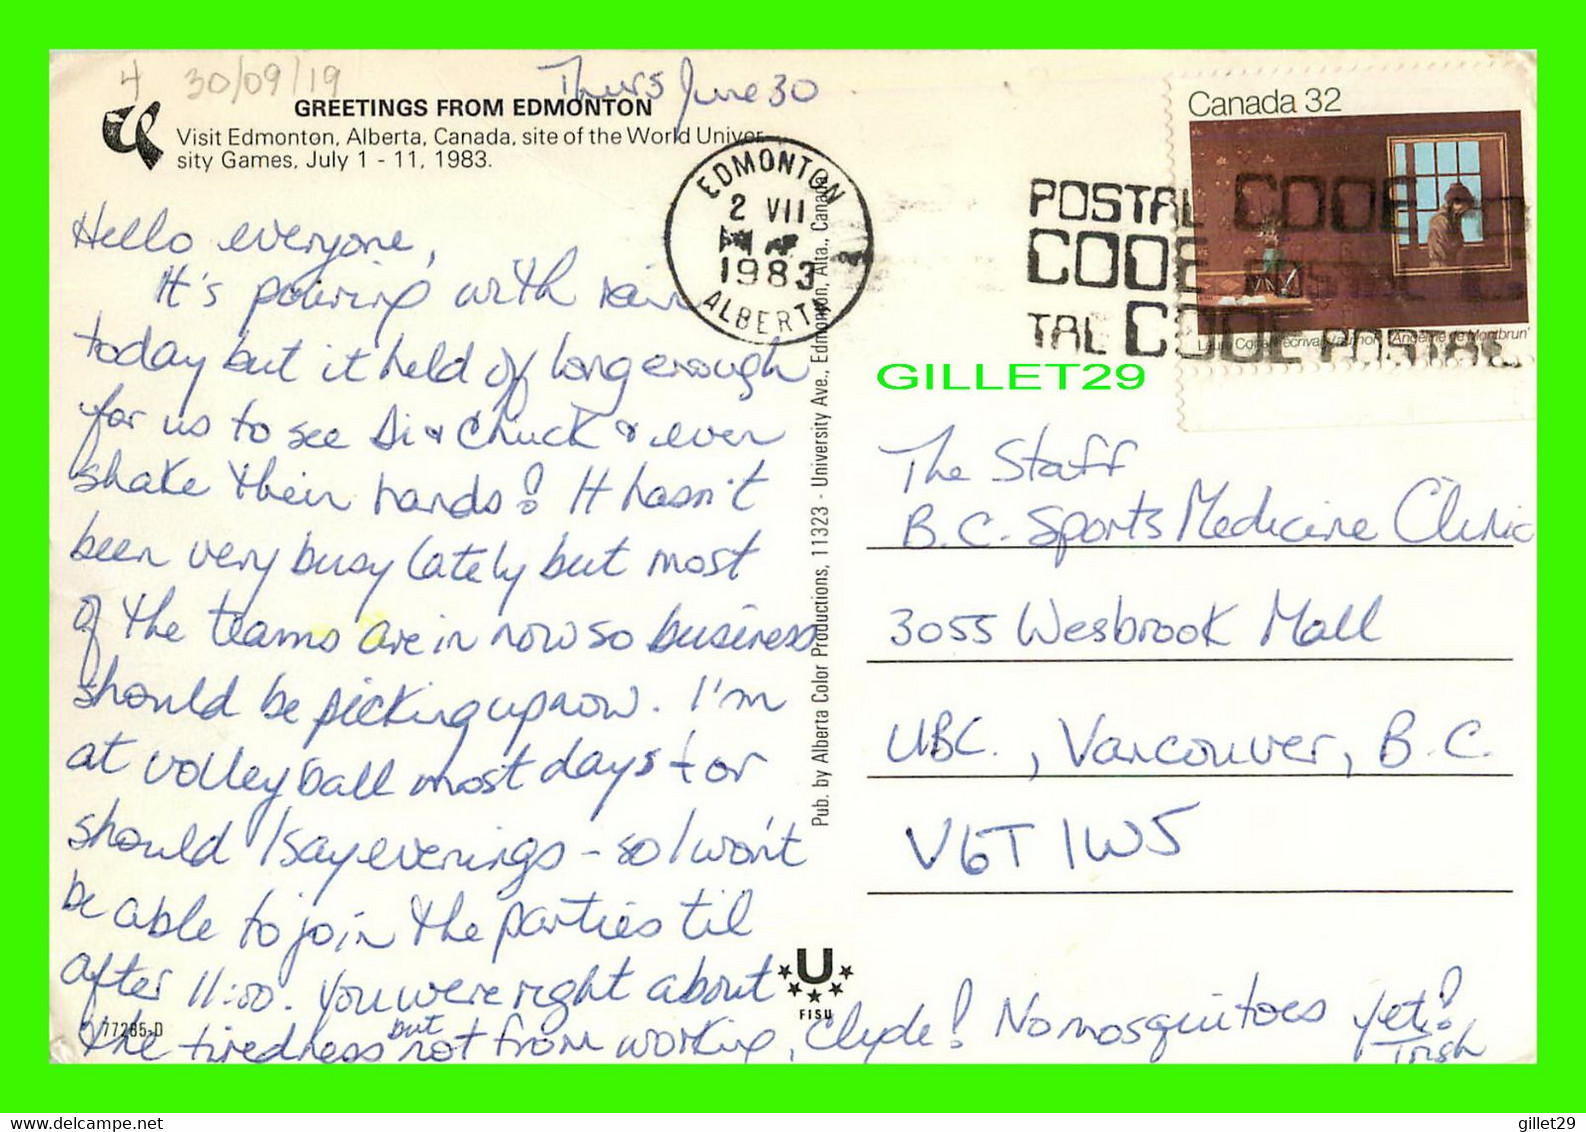 4 30/09/19
Thurs June 30
GREETINGS FROM EDMONTON
Visit Edmonton, Alberta, Canada, site of the World Univer-
sity Games, July 1 - 11, 1983.
Canada 32
EDMONTON
2 VII
1983
ALBERTA
POSTAL CODE
CODE POSTAL C
TAL CODE POSTAL
'Angéline de Montbrun'
GILLET29
Hello everyone,
It's pouring with rain
today but it held off long enough
for us to see Di & Chuck & even
shake their hands! It hasn't
been very busy lately but most
of the teams are in now so business
should be picking up now. I'm
at volleyball most days + or
should I say evenings - so I won't
be able to join the parties til
after 11:00. You were right about
the tiredness but not from working, Clyde! No mosquitoes yet!
Trish
77285-D
Pub. by Alberta Color Productions, 11323 - University Ave., Edmonton, Alta., Canada
U
FISU
The Staff
B.C. Sports Medicine Clinic
3055 Wesbrook Mall
UBC., Vancouver, B.C.
V6T 1W5
gillet29